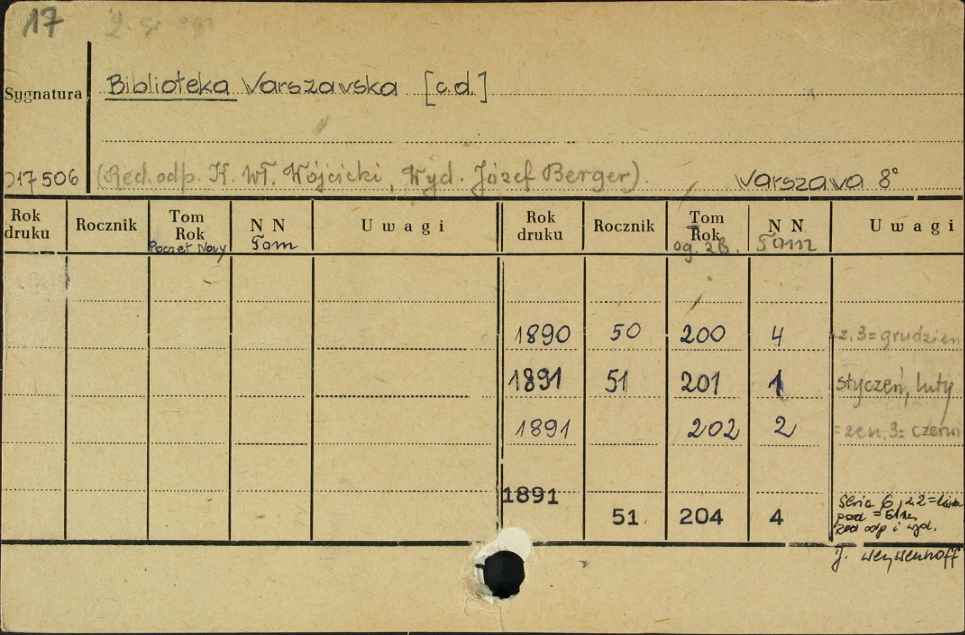 17
Sygnatura
Biblioteka Warszawska [c.d.]
017506 (Red. odp. K. Wł. Wójcicki, Wyd. Józef Berger). Warszawa 8°
Rok druku Rocznik Tom Rok Poczet Nowy N N Tom Uwagi Rok druku Rocznik Tom Rok og. zb. N N Tom Uwagi
1890 50 200 4 z. 3 = grudzień
1891 51 201 1 styczeń, luty
1891 202 2 3 = czerw
1891 51 204 4 Seria 6,
red odp i wyd.
J. Weyssenhoff